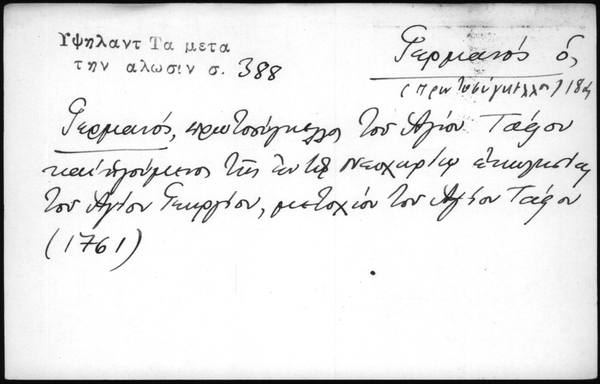 Υψηλαντ Τα μετα
την αλωσιν σ. 388
Γερμανός ὁ,
(πρωτοσύγκελλος) 18
Γερμανός, πρωτοσύγκελλος τοῦ Ἁγίου Τάφου
καὶ ἡγούμενος τῆς ἐν τῷ Νεοχωρίῳ ἐκκλησίας
τοῦ Ἁγίου Γεωργίου, μετοχίου τοῦ Ἁγίου Τάφου
(1761)